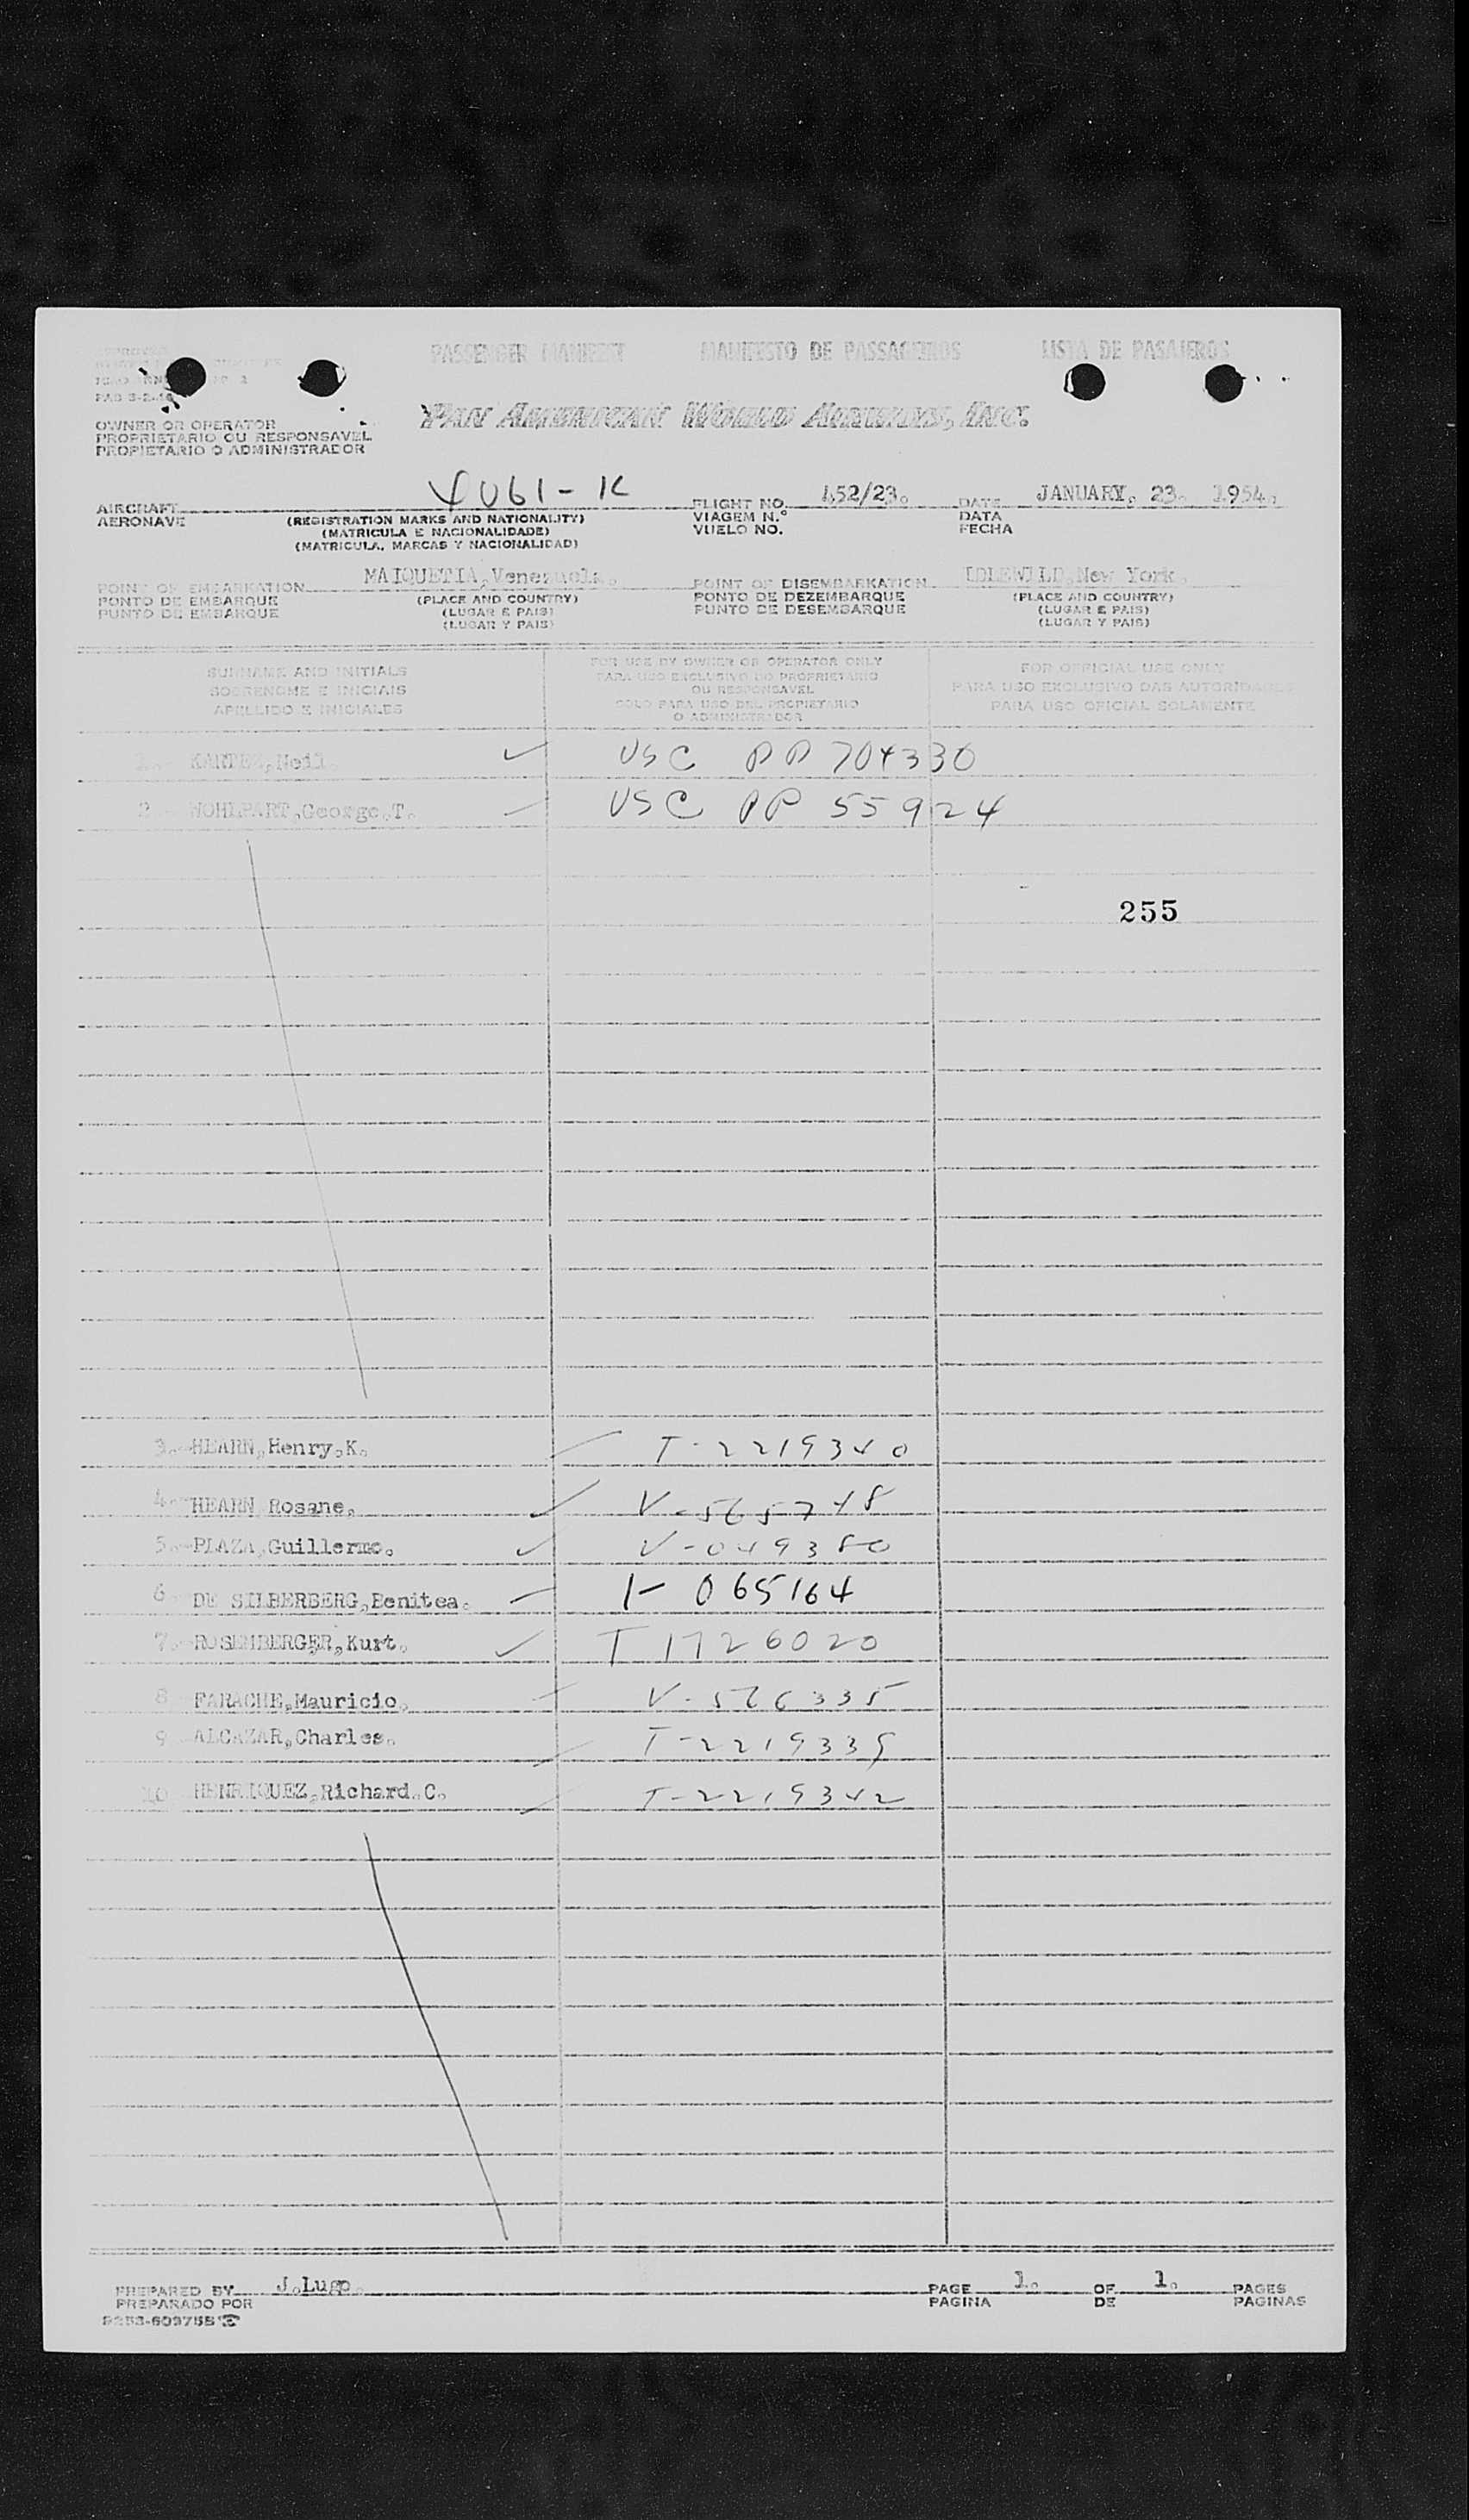 PASSENGER MANIFEST MANIFESTO DE PASSAGEIROS LISTA DE PASAJEROS
PAN AMERICAN WORLD AIRWAYS, INC.
OWNER OR OPERATOR
PROPRIETARIO OU RESPONSAVEL
PROPIETARIO O ADMINISTRADOR
AIRCRAFT 4061-K FLIGHT NO. 152/23. DATE JANUARY, 23. 1954.
AERONAVE (REGISTRATION MARKS AND NATIONALITY) VIAGEM N.º DATA
(MATRICULA E NACIONALIDADE) VUELO NO. FECHA
(MATRICULA, MARCAS Y NACIONALIDAD)
POINT OF EMBARKATION MAIQUETIA, Venezuela. POINT OF DISEMBARKATION IDLEWILD, New York.
PONTO DE EMBARQUE (PLACE AND COUNTRY) PONTO DE DEZEMBARQUE (PLACE AND COUNTRY)
PUNTO DE EMBARQUE (LUGAR E PAIS) PUNTO DE DESEMBARQUE (LUGAR E PAIS)
(LUGAR Y PAIS) (LUGAR Y PAIS)
SURNAME AND INITIALS FOR USE BY OWNER OR OPERATOR ONLY FOR OFFICIAL USE ONLY
SOBRENOME E INICIAIS PARA USO EXCLUSIVO DO PROPRIETARIO PARA USO EXCLUSIVO DAS AUTORIDADES
OU RESPONSAVEL
APELLIDO E INICIALES SOLO PARA USO DEL PROPIETARIO PARA USO OFICIAL SOLAMENTE
O ADMINISTRADOR
Neil. USC PP 704330
2 WOHLPART, George, T. USC PP 55924
255
3.-HEARN, Henry, K. T-2219340
4.-HEARN Rosane. V-565748
5.-PLAZA, Guillermo. V-049380
6 DE SILBERBERG, Benitea. I- 065164
7.-ROSENBERGER, Kurt. T 1726020
8 FARACHE, Mauricio. V-526335
9 ALCAZAR, Charles. T-2219339
10 HENRIQUEZ, Richard. C. T-2219342
PREPARED BY J. Lugo. PAGE 1. OF 1. PAGES
PREPARADO POR PAGINA DE PAGINAS